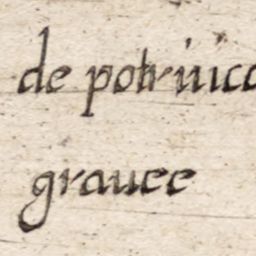 de potriuico
grauee